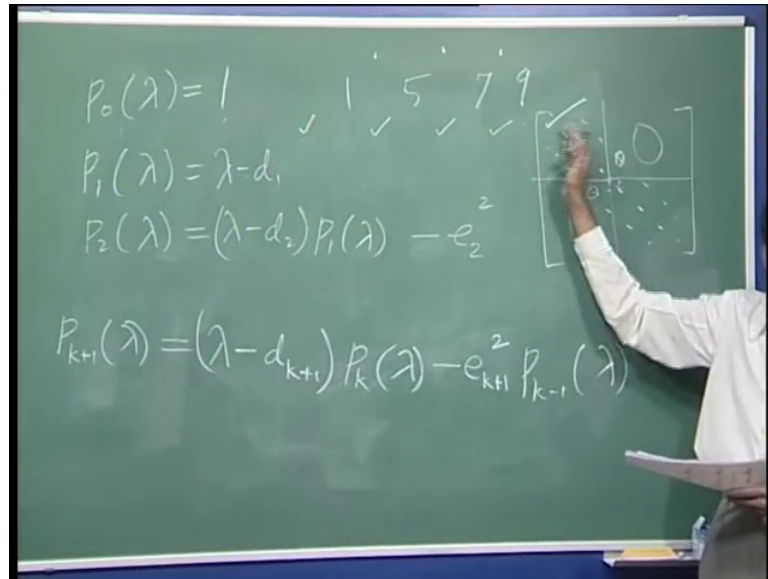 p₀(λ) = 1 1 5 7 9
p₁(λ) = λ-d₁
p₂(λ) = (λ-d₂)p₁(λ) - e₂²
P_{k+1}(λ) = (λ-d_{k+1}) p_k(λ) - e²_{k+1} p_{k-1}(λ)
0